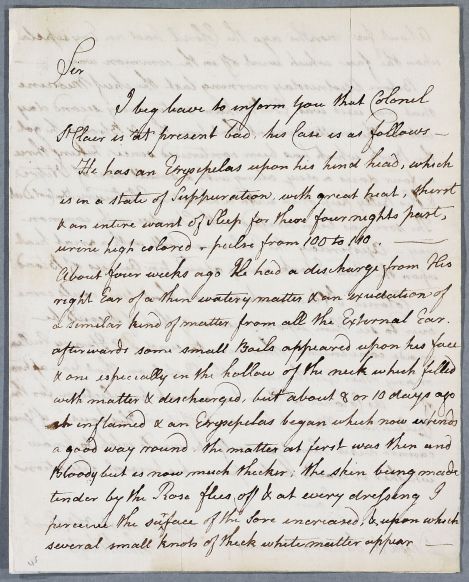 Sir
I beg leave to inform You that Colonel
St Clair is at present bad, his Case is as follows —
He has an Erysepelas upon his hind head, which
is in a state of Suppuration, with great heat, thirst
& an entire want of Sleep for these four nights past,
urine high colored & pulse from 100 to 110. —
About four weeks ago He had a discharge from His
right Ear of a thin watery matter & an exudation of
a similar kind of matter from all the External Ear.
afterwards some small Boils appeared upon his face
& one especially in the hollow of the neck which filled
with matter & discharged, but about 8 or 10 days ago
it inflamed & an Erysepelas began which now extends
a good way round. the matter at first was thin and
Bloody but is now much thicker; the skin being made
tender by the Rose flies off & at every dressing I
perceive the surface of the Sore increased, & upon which
several small knots of thick white matter appear —